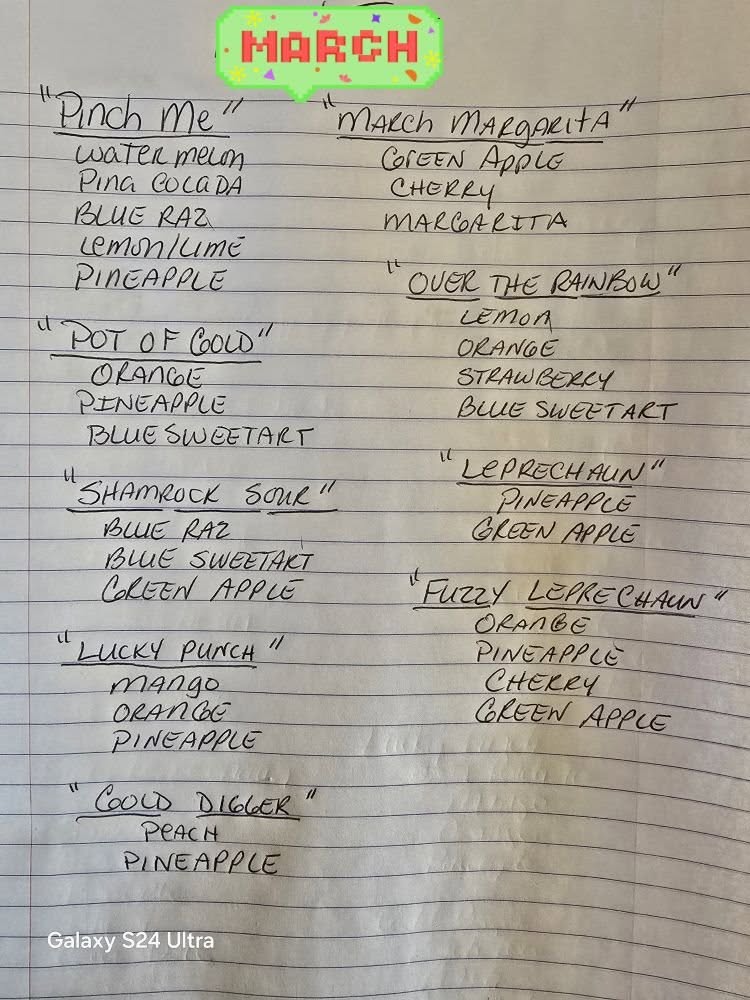 MARCH
"Pinch Me"
Watermelon
Pina Colada
Blue Raz
Lemon/Lime
Pineapple
"Pot of Gold"
Orange
Pineapple
Blue Sweetart
"Shamrock Sour"
Blue Raz
Blue Sweetart
Green Apple
"Lucky Punch"
Mango
Orange
Pineapple
"Gold Digger"
Peach
Pineapple
"March Margarita"
Green Apple
Cherry
Margarita
"Over the Rainbow"
Lemon
Orange
Strawberry
Blue Sweetart
"Leprechaun"
Pineapple
Green Apple
"Fuzzy Leprechaun"
Orange
Pineapple
Cherry
Green Apple
Galaxy S24 Ultra